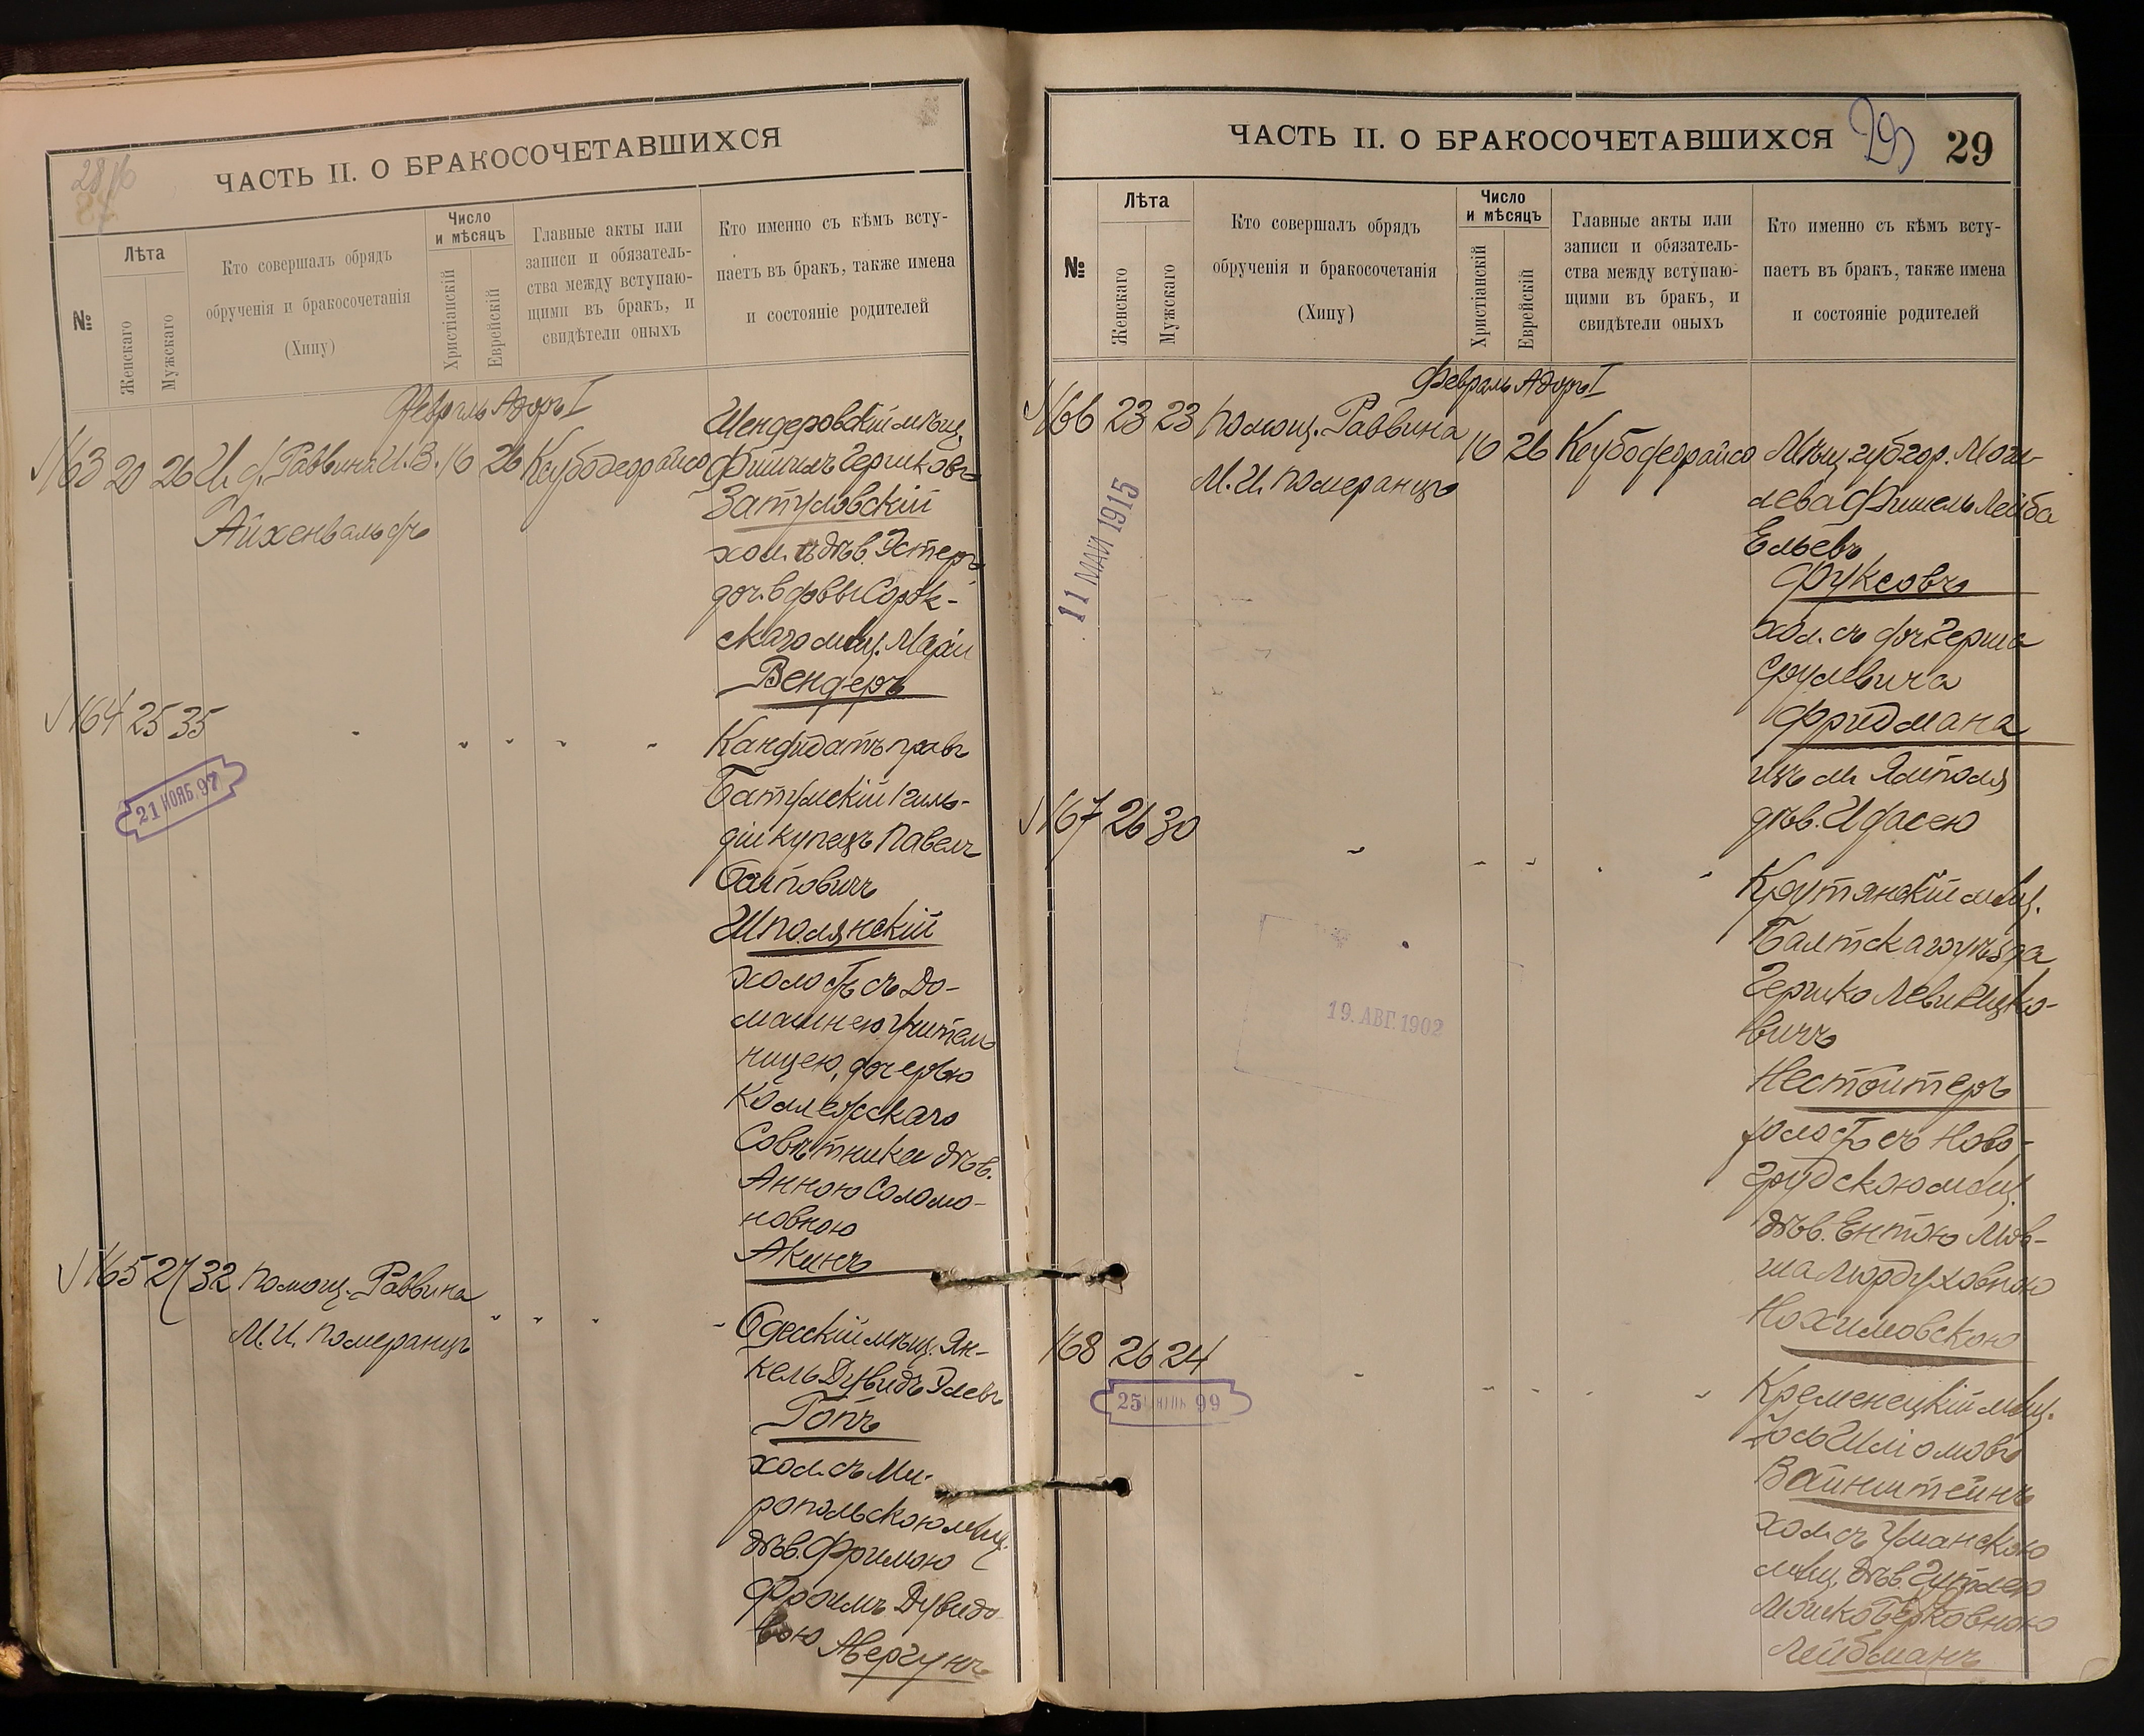 ЧАСТЬ II. О БРАКОСОЧЕТАВШИХСЯ
№
Лѣта
Женскаго
Мужскаго
Кто совершалъ обрядъ
обрученія и бракосочетанія
(Хипу)
Число
и мѣсяцъ
Христіанскій
Еврейскій
Главные акты или
записи и обязатель-
ства между вступаю-
щими въ бракъ, и
свидѣтели оныхъ
Кто именно съ кѣмъ всту-
паетъ въ бракъ, также имена
и состояніе родителей
Февраль Адоръ I
163 20 26 И. д. Раввина И.В. 16 26 Ксубо дедрайсо
Айхенвальдъ
Шендеровскій мѣщ.
Фишель Гершковъ
Затуловскій
хол. съ дѣв. Эстеръ,
доч. вдовы Сорок-
скаго мѣщ. Маріи
Вендеръ
164 25 35
21 НОЯБ. 97
Кандидатъ правъ
Батумскій 1 гиль-
діи купецъ Павелъ
Шполянскій
холостъ съ До-
машнею учитель
ницею, дочерью
Коллежскаго
Совѣтника дѣв.
Анною Соломо-
новною
Акинъ
165 27 32 Помощ. Раввина
М. И. Померанцъ
Одесскій мѣщ. Ян-
кель Дувидъ Элевъ
Гопъ
хол. съ Ми-
ропольскою мѣщ.
дѣв. Фримою
Фроимъ Дувидо
вою Авергунъ
ЧАСТЬ II. О БРАКОСОЧЕТАВШИХСЯ
29
29
№
Лѣта
Женскаго
Мужскаго
Кто совершалъ обрядъ
обрученія и бракосочетанія
(Хипу)
Число
и мѣсяцъ
Христіанскій
Еврейскій
Главные акты или
записи и обязатель-
ства между вступаю-
щими въ бракъ, и
свидѣтели оныхъ
Кто именно съ кѣмъ всту-
паетъ въ бракъ, также имена
и состояніе родителей
Февраль Адоръ I
166 23 23 Помощ. Раввина 16 26 Ксубо дедрайсо
М. И. Померанцъ
11 МАЙ 1915
Мѣщ. губ. гор. Моги-
лева Фишель Лейба
Ельевъ
Фуксовъ
хол. съ доч. Герша
Срулевича
Фридмана
изъ м. Ямполя
дѣв. Идасею
167 26 30
19. АВГ. 1902
Крутянскій мѣщ.
Балтскаго уѣзда
Гершко Леви Ицко-
вичъ
Нестойтеръ
холостъ съ Ново-
грудскою мѣщ.
дѣв. Ентою Мов-
ша Мордуховною
Нохимовскою
168 26 24
25 99
Кременецкій мѣщ.
Іось Шліомовъ
Вайнштейнъ
хол. съ Уманскою
мѣщ. дѣв. Гитлею
Мошко Берковною
Лейбманъ